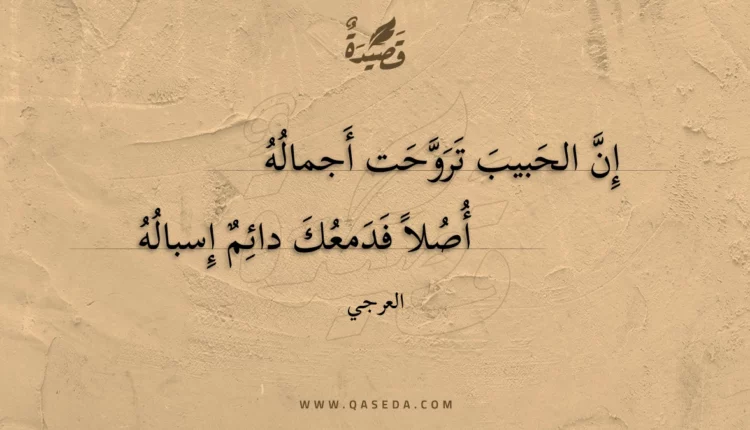 قَصِيدَةٌ
إِنَّ الحَبيبَ تَرَوَّحَت أَجمالُهُ
أُصُلاً فَدَمعُكَ دائِمٌ إِسبالُهُ
العرجي
WWW.QASEDA.COM